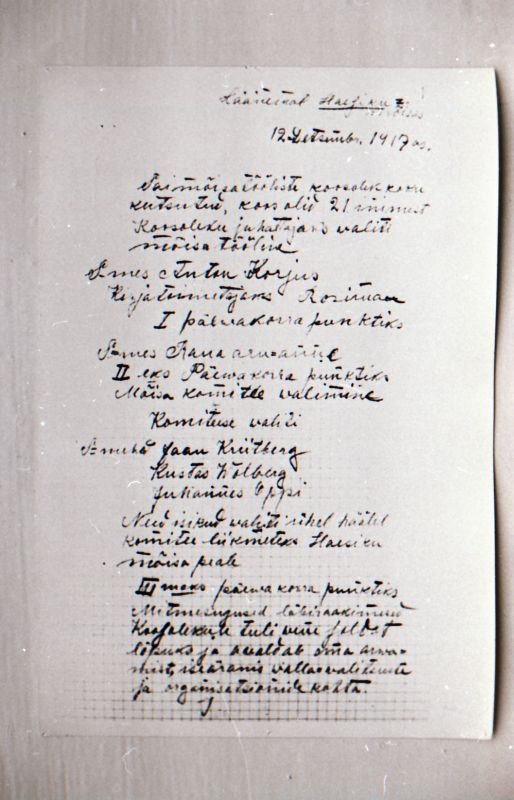 Läänemal Haesiku mõisas
12 Detsembr. 1917 a.
Sai mõisatööliste koosolek kokku
kutsutud, koos olid 21 inimest
Koosoleku juhatajaks valiti
mõisa tööline
S-mes Anton Korjus
Kirjatoimetajaks Rosiman
I päewakorra punktiks
S-mes Rana aruanne
II eks Päewakorra punktiks
Mõisa komitee walimine
Komiteese waliti
S-mehed Jaan Kriitberg
Kustas Wolberg
Juhannes Oppi
Need isikud waliti ühel häälel
komitee liikmeteks Haesiku
mõisa peale
III maks päewakorra punktiks
Mitmesugused läbirääkimised
Koosolekule tuli weue soldat
lõpuks ja awaldab oma arwa-
mist, iseäranis wallawalitsuste
ja organisatsionide kohta.